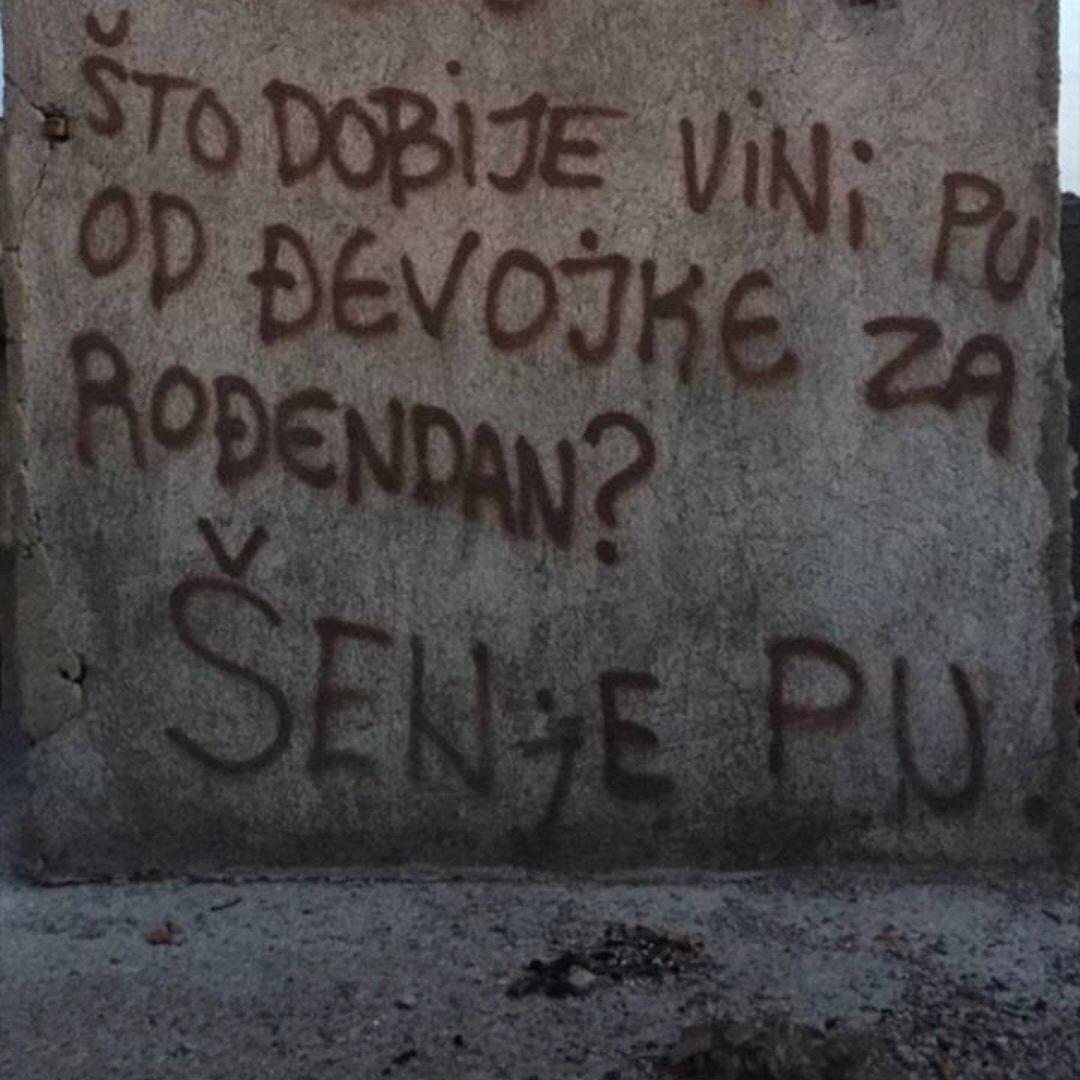 ŠTO DOBIJE ViNi PU
OD ĐEVOJKE ZA
ROĐENDAN?
ŠENjE PU.